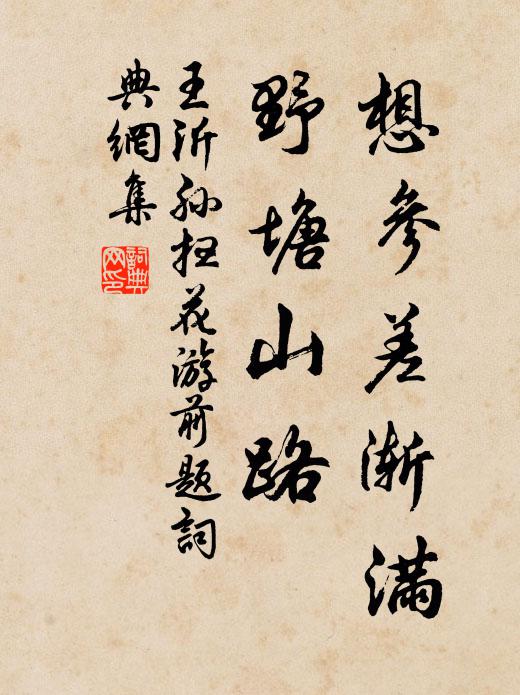 想參差漸滿
野塘山路
王沂孙扫花游前題詞
典網集
詞典網印